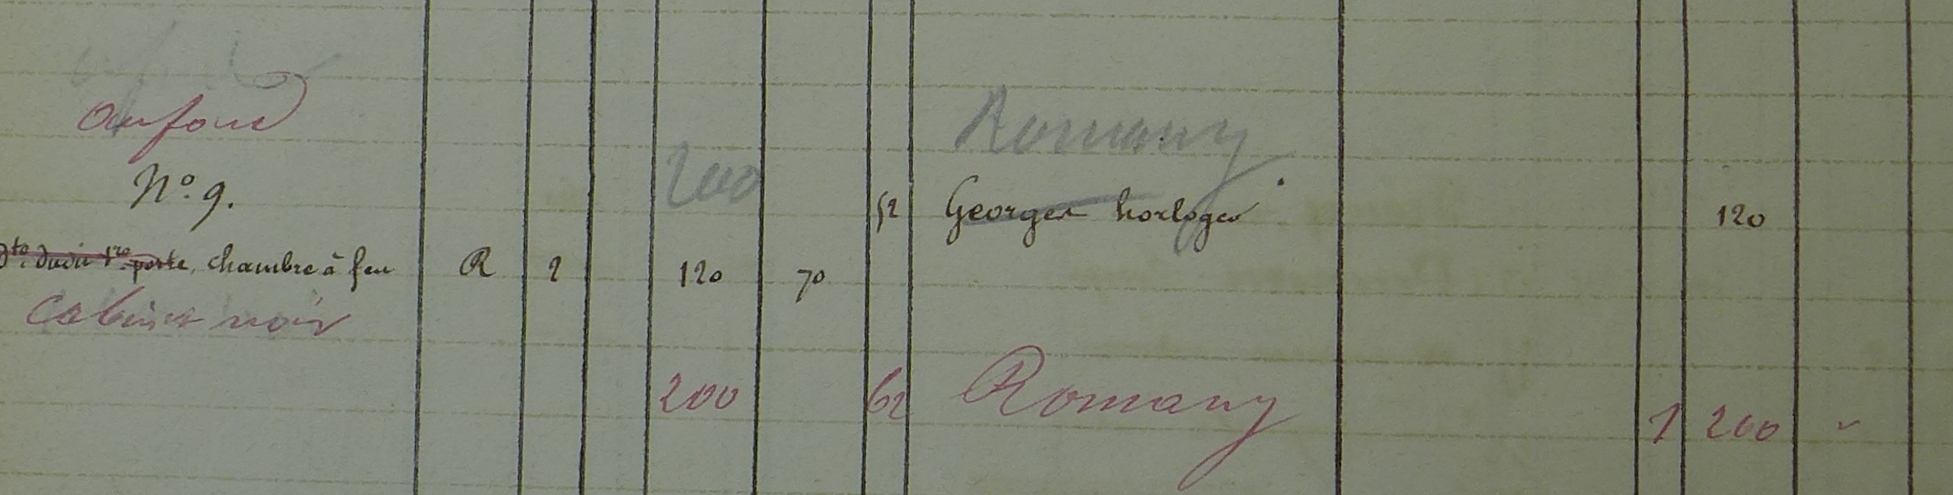 au fond
Romany
200
No. 9.
52 Georges horloger 120
dto. dudit 1re porte, chambre à feu R 2 120 70
Cabinet noir
200 62 Romany 1 200